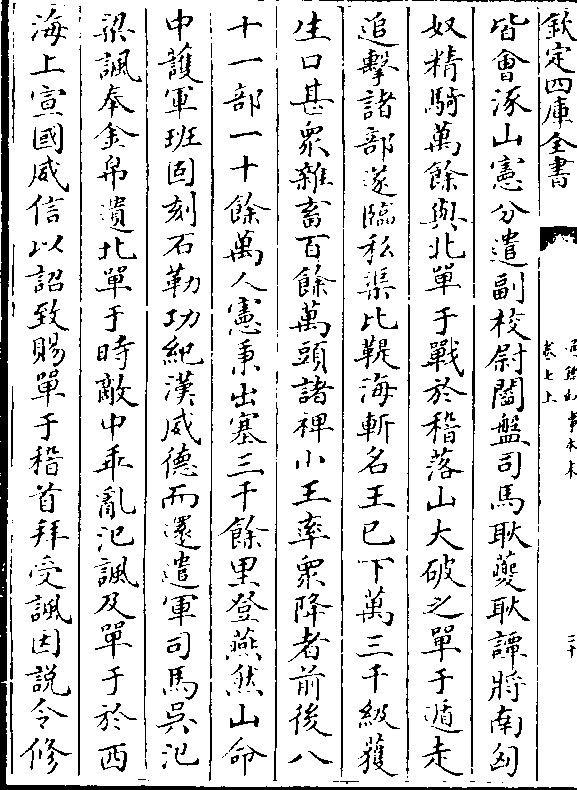 欽定四庫全書
卷七上
二十
皆會涿山憲分遣副校尉閻盤司馬耿夔耿譚將南匈
奴精騎萬餘與北單于戰於稽落山大破之單于遁走
追擊諸部遂臨私渠比鞮海斬名王已下萬三千級獲
生口甚衆雜畜百餘萬頭諸裨小王率衆降者前後八
十一部二十餘萬人憲秉出塞三千餘里登燕然山命
中護軍班固刻石勒功紀漢威德而還遣軍司馬吳汜
梁諷奉金帛遺北單于時敵中乖亂汜諷及單于於西
海上宣國威信以詔致賜單于稽首拜受諷因說令修